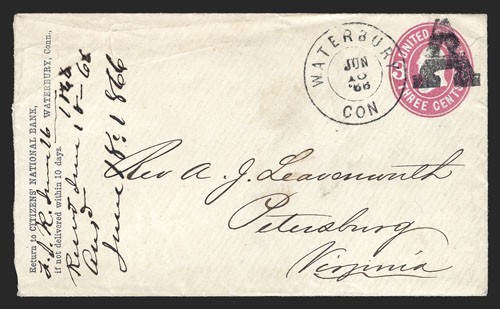 Return to CITIZENS' NATIONAL BANK,
WATERBURY, Conn.,
if not delivered within 10 days.
June 16
1866
June 18
June 18th 1866
WATERBURY
JUN
16
'66
CON
UNITED
THREE CENTS
Rev A. J. Leavenworth
Petersburg
Virginia